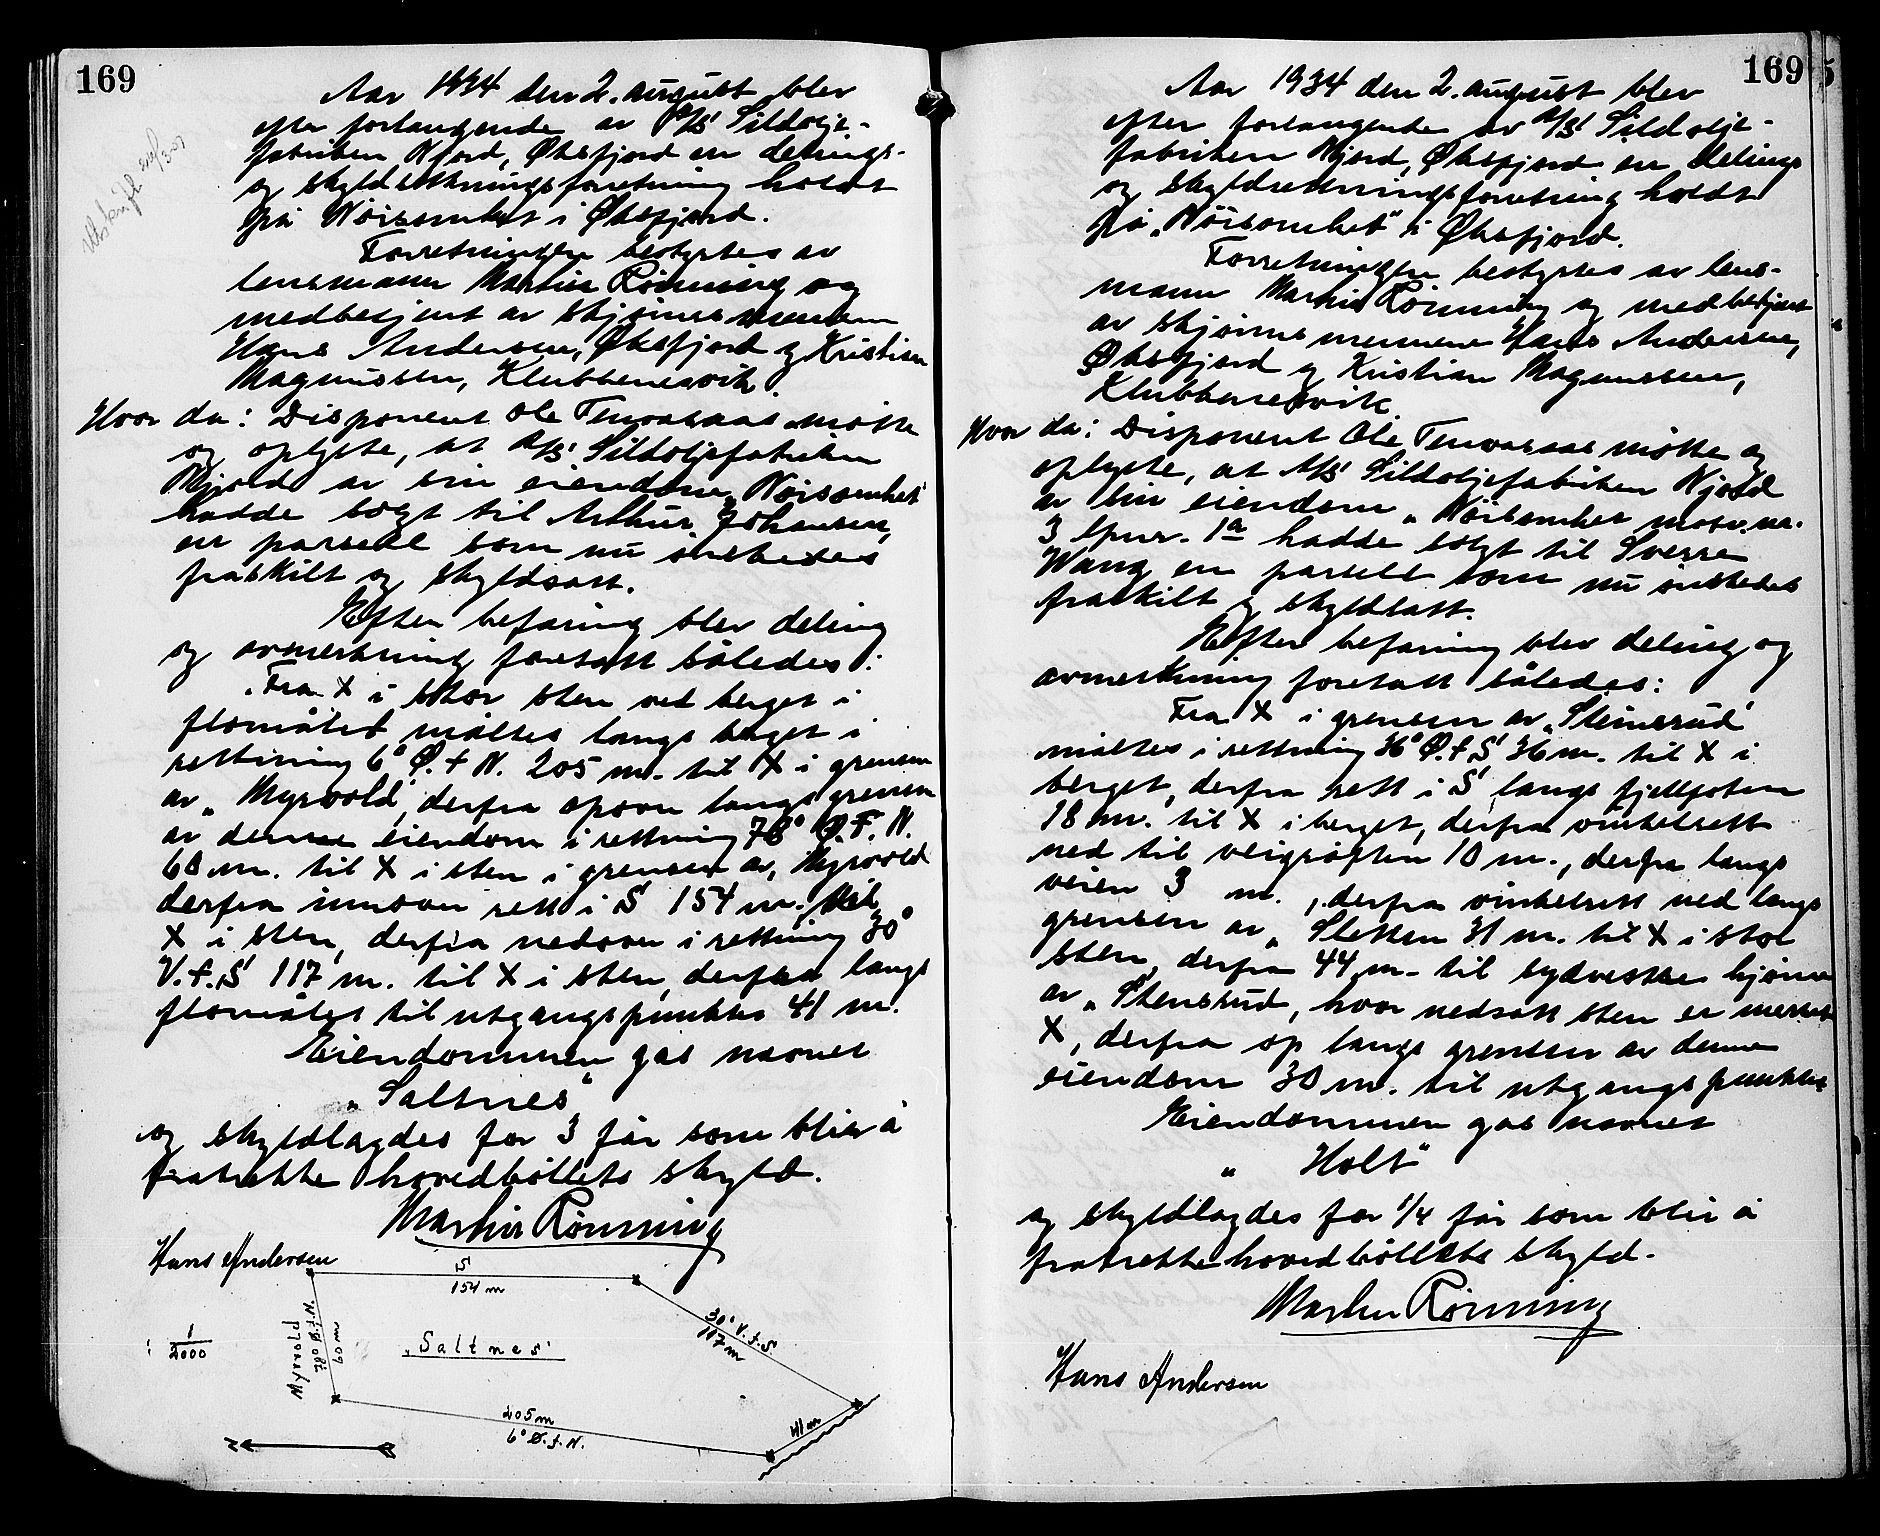 169
Aar 1934 den 2. august blev
efter forlangende av A/S Sildolje-
fabriken Njord, Øksfjord en delings-
og skyldsetningsforretning holdt
på Nøisomhet i Øksfjord.
Forretningen bestyrtes av
lensmann Martin Rønning og
medbetjent av skjønnsmennene
Hans Andersen, Øksfjord og Kristian
Magnussen, Klubbenesvik.
Hvor da: Disponent Ole Tenvaraas møtte
og oplyste, at A/S Sildoljefabriken
Njord av sin eiendom „Nøisomhet"
hadde solgt til Arthur Johansen,
en parsell som nu ønskedes
fraskilt og skyldsatt.
Efter befaring blev deling
og avmerkning foretatt således:
Fra X i stor sten ved berget i
flomålet måltes langs berget i
rettning 6° Ø.f.N. 205 m. til X i grensen
av „Myrvold", derfra opover langs grensen
av denne eiendom i rettning 78° Ø.F.N.
60 m. til X i sten i grensen av „Myrvold
derfra innover rett i S 154 m. til
X i sten, derfra nedover i rettning 30°
V.f.S 117 m. til X i sten, derfra langs
flomålet til utgangspunktet 41 m.
Eiendommen gas navnet
„Saltnes"
og skyldlagdes for 3 før som blir å
fratrekke hovedbøllets skyld.
Martin Rønning
Hans Andersen
S
154 m
30° V.f.S
117 m
Myrvold
78° Ø.f.N.
60 m
„Saltnes"
: 1/2000
205 m
6° Ø.f.N.
41 m
N
169
Aar 1934 den 2. august blev
efter forlangende av A/S Sildolje-
fabriken Njord, Øksfjord en delings
og skyldsetningsforretning holdt
på „Nøisomhet" i Øksfjord.
Forretningen bestyrtes av lens-
mann Martin Rønning og medbetjent
av skjønnsmennene Hans Andersen,
Øksfjord og Kristian Magnussen,
Klubbenesvik.
Hvor da: Disponent Ole Tenvaraas møtte og
oplyste, at A/S Sildoljefabriken Njord
av sin eiendom „Nøisomhet matr. nr.
3 lpnr. 1a hadde solgt til Sverre
Wang en parsell som nu ønskedes
fraskilt og skyldsatt.
Efter befaring blev deling og
avmerkning foretatt således:
Fra X i grensen av „Steinsrud"
måltes i rettning 36° Ø.f.S 36 m. til X i
berget, derfra rett i S langs fjellfoten
18 m. til X i berget, derfra vinkelrett
ned til veigrøften 10 m., derfra langs
veien 3 m., derfra vinkelrett ned langs
grensen av „Sletten 31 m. til X i stor
sten, derfra 44 m. til sydvestre hjørne
av „Stensrud, hvor nedsatt sten er merket
X, derfra op langs grensen av denne
eiendom 30 m. til utgangspunktet
Eiendommen gas navnet
„Holt"
og skyldlagdes for 1/4 før som blir å
fratrekke hovedbøllets skyld.
Martin Rønning
Hans Andersen